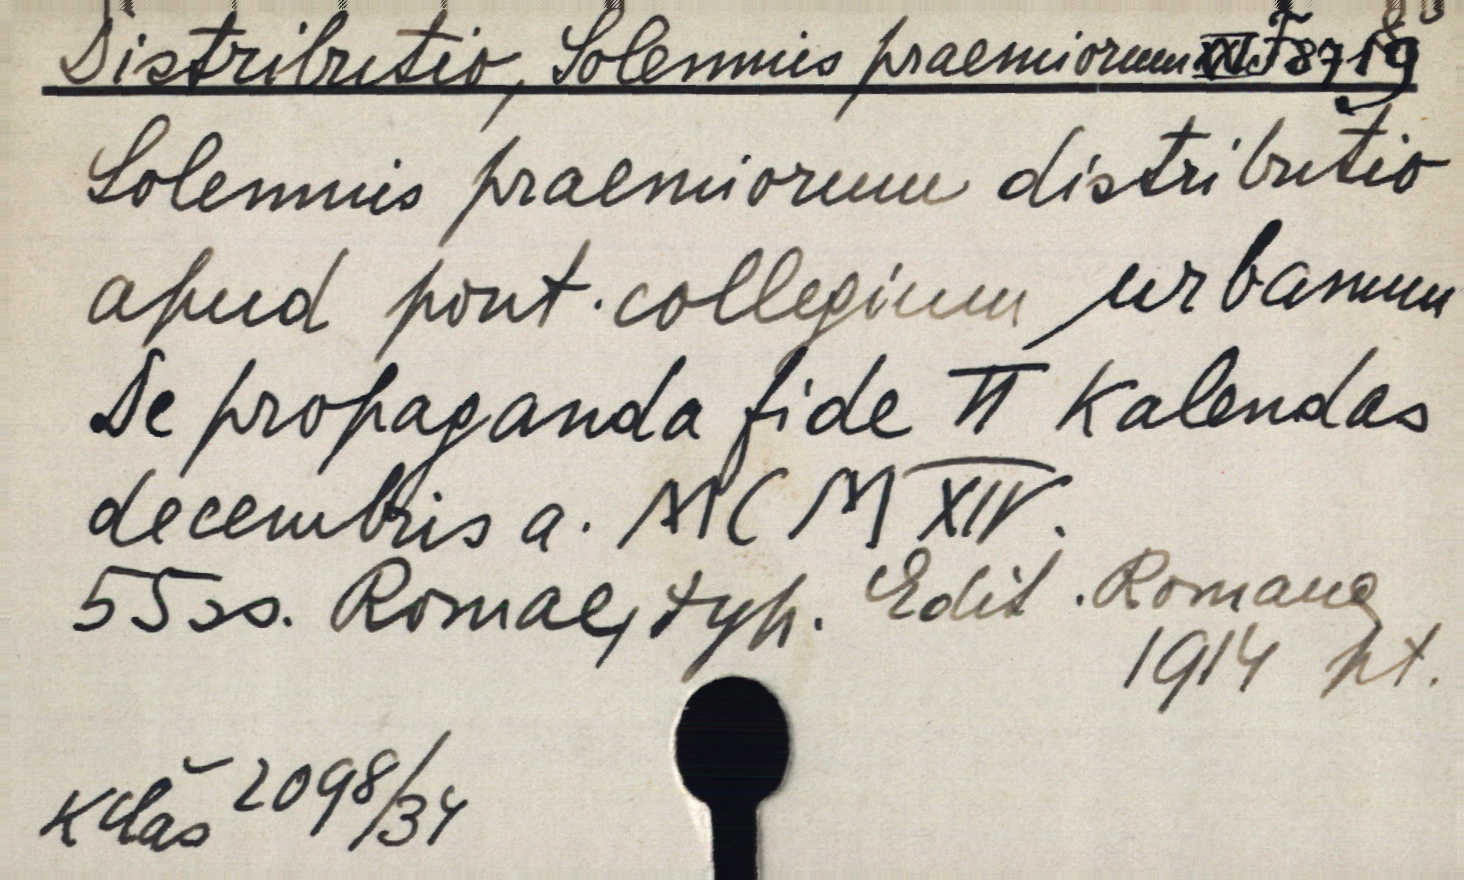 Distributio, Solemnis praemiorum
Solemnis praemiorum distributio
apud pont. collegium urbanum
De propaganda fide II Kalendas
decembris a. MCMXIV.
55 ss. Romae, typ. Edit. Romana
1914 pt.
Klaš 2098/34